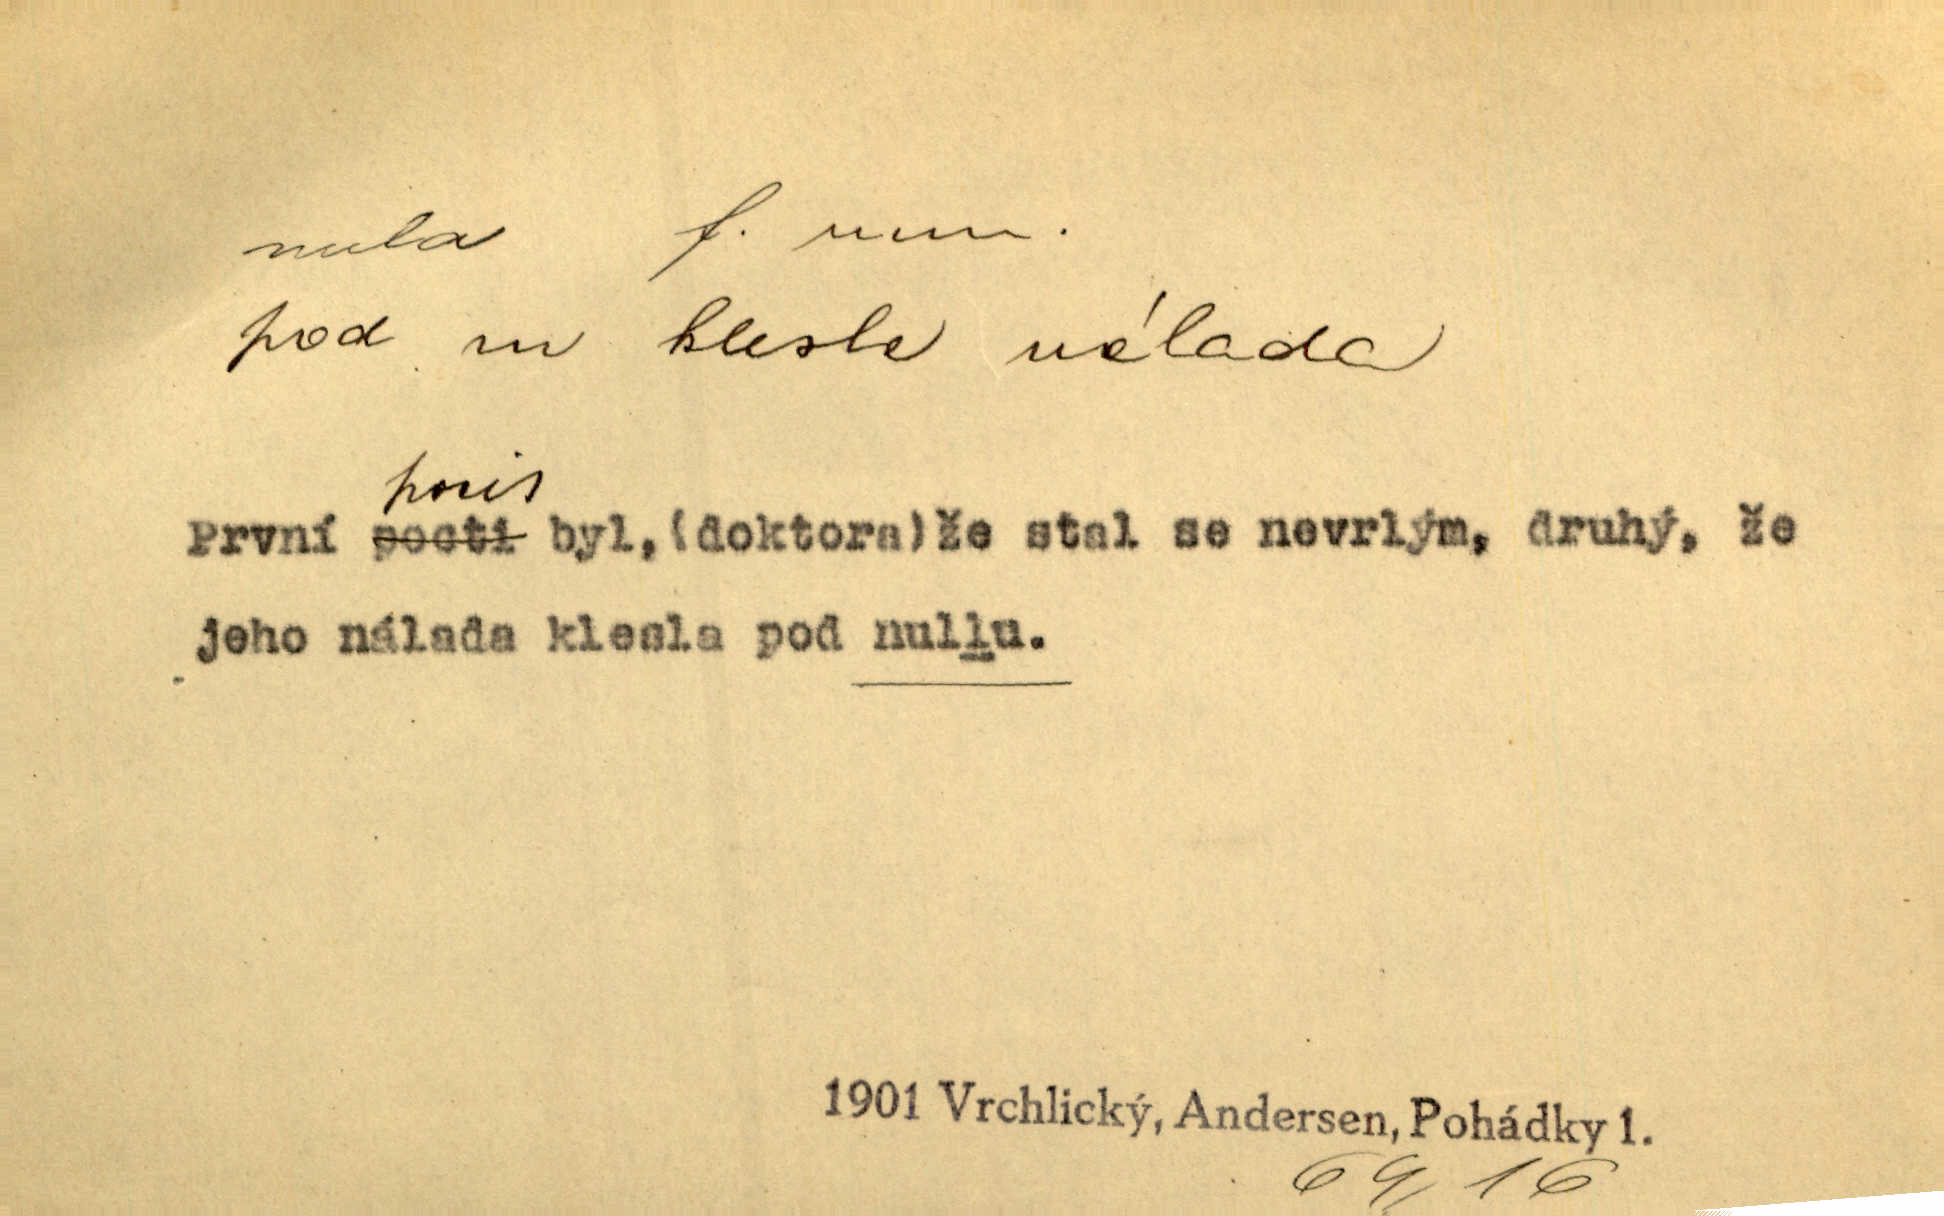 nula f. num.
pod n klesla nálada
První pocti byl,(doktora)že stal se nevrlým, druhý, že
jeho nálada klesla pod nullu.
1901 Vrchlický, Andersen, Pohádky 1.
69, 16